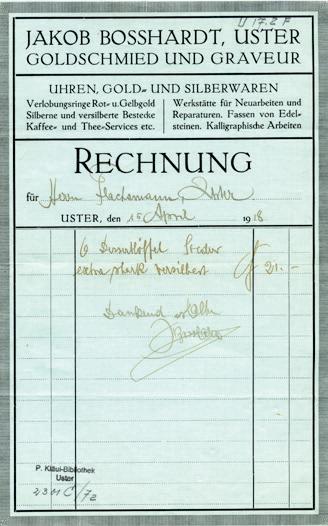 U 17. 2 F
JAKOB BOSSHARDT, USTER
GOLDSCHMIED UND GRAVEUR
UHREN, GOLD- UND SILBERWAREN
Verlobungsringe Rot- u. Gelbgold
Silberne und versilberte Bestecke
Kaffee- und Thee-Services etc.
Werkstätte für Neuarbeiten und
Reparaturen. Fassen von Edel-
steinen. Kalligraphische Arbeiten
RECHNUNG
für Herrn Flachsmann, Uster
USTER, den 15 April 1918
6 Dessertlöffel
extra stark versilbert 21.-
Dankend erhalten
P. Kläui-Bibliothek
Uster